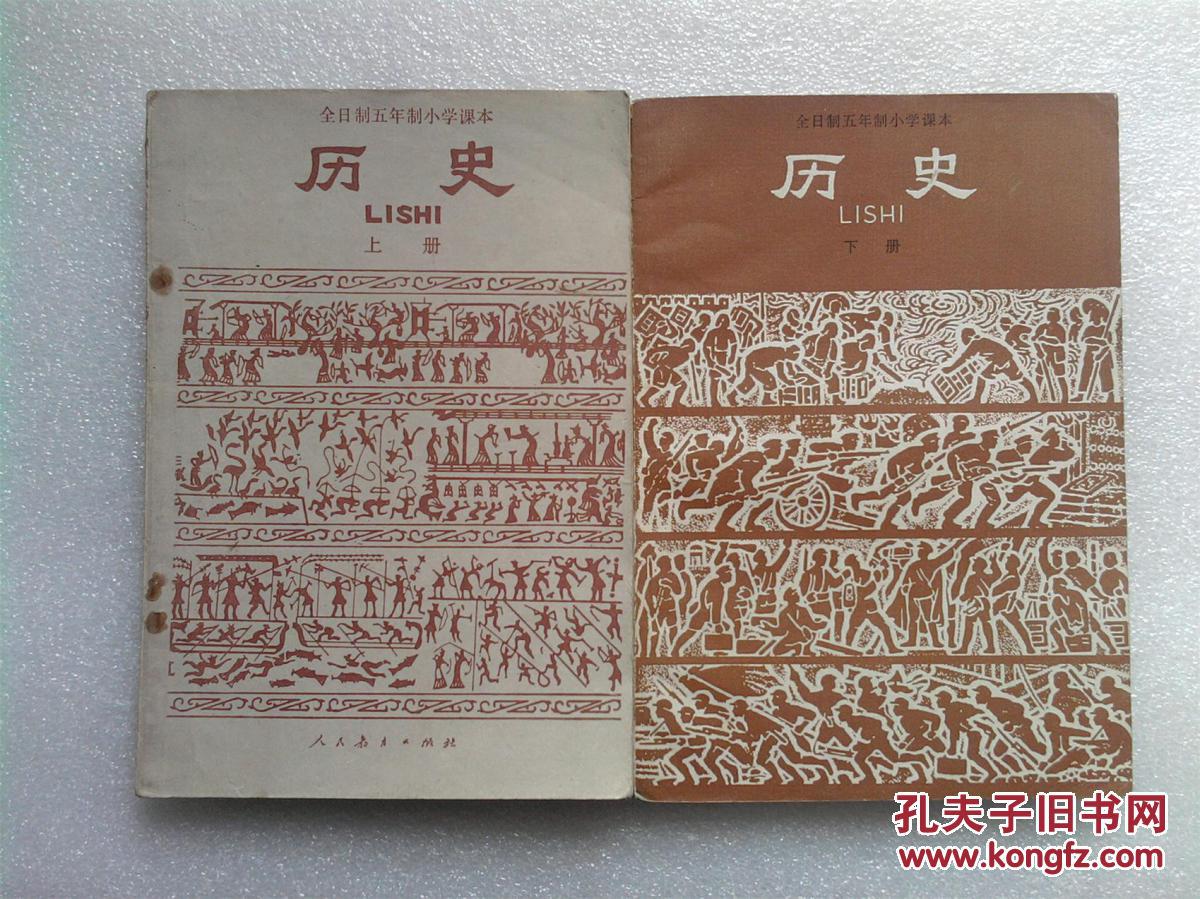 全日制五年制小学课本
历史
LISHI
上册
人民教育出版社
全日制五年制小学课本
历史
LISHI
下册
孔夫子旧书网
www.kongfz.com